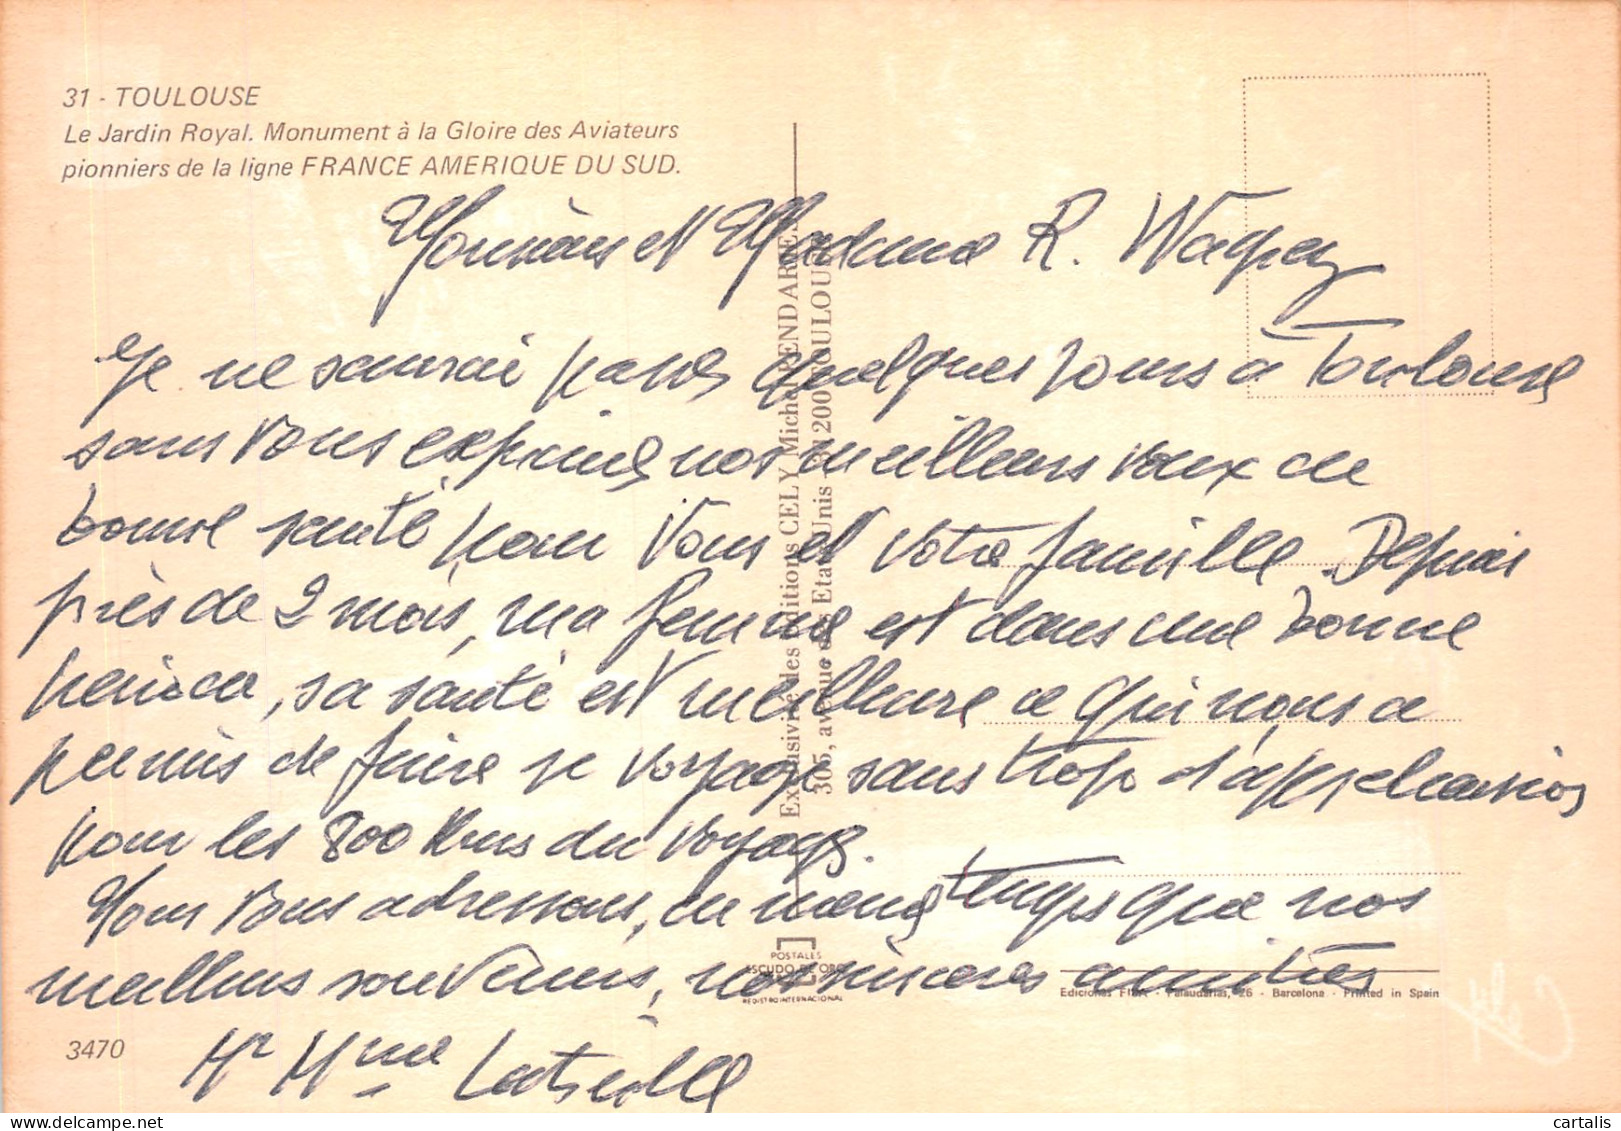 31 - TOULOUSE
Le Jardin Royal. Monument à la Gloire des Aviateurs
pionniers de la ligne FRANCE AMERIQUE DU SUD.
Monsieur et Madame R. Wagner
Je ne saurai passer quelques jours à Toulouse
sans vous exprimer nos meilleurs vœux de
bonne santé pour vous et votre famille. Depuis
près de 2 mois, ma femme est dans une bonne
période, sa santé est meilleure ce qui nous a
permis de faire ce voyage sans trop d'appréhension
pour les 800 Kms du voyage.
Nous vous adressons, en même temps que nos
meilleurs souvenirs, nos sincères amitiés
Mr Mme
Exclusivité des Editions CELY Michel RENDARES
305, avenue des Etats Unis - 31200 TOULOUSE
POSTALES
ESCUDO DE ORO
REGISTRO INTERNACIONAL
Ediciones FISA - Palaudarias, 26 - Barcelona - Printed in Spain
3470
cartalis